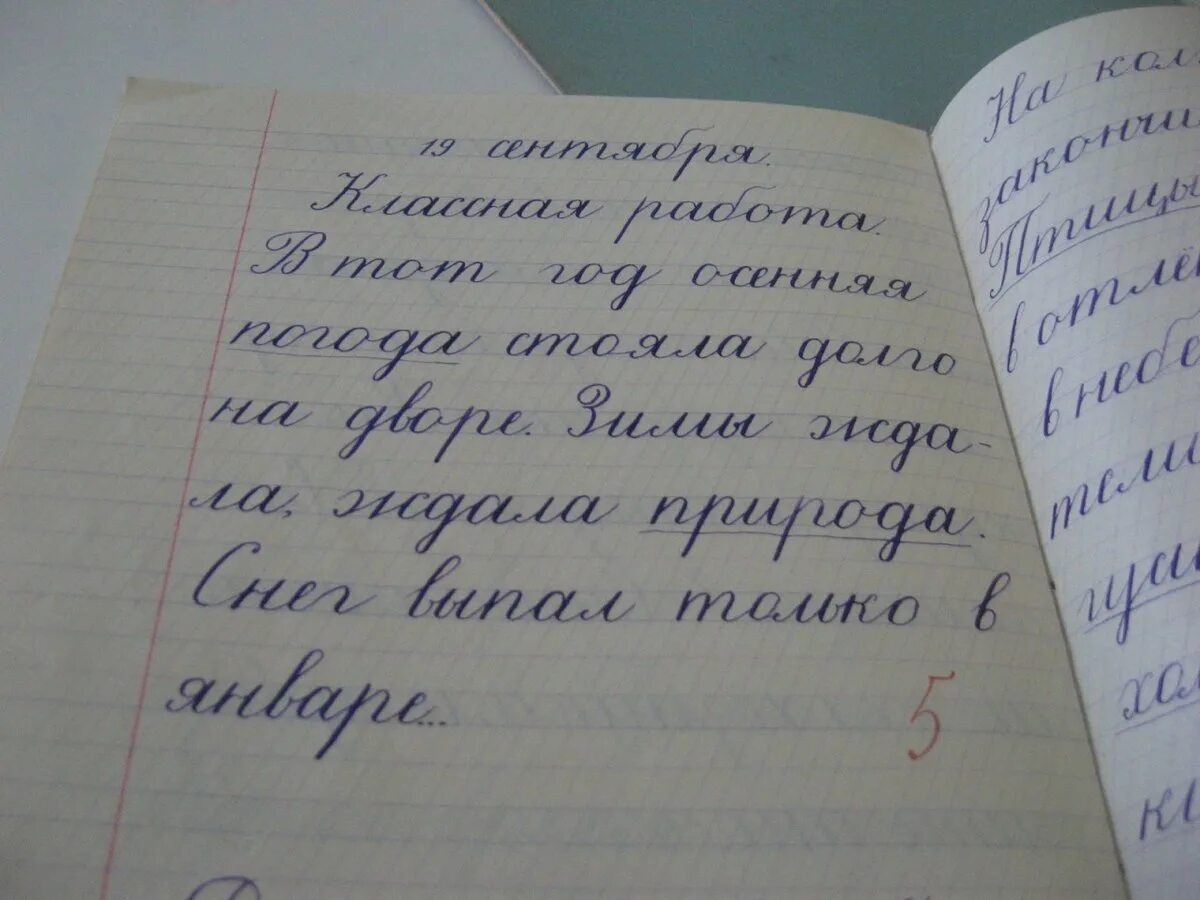 19 сентября.
Классная работа.
В тот год осенняя
погода стояла долго
на дворе. Зимы жда-
ла, ждала природа.
Снег выпал только в
январе...
5
На
Птицы
в небе